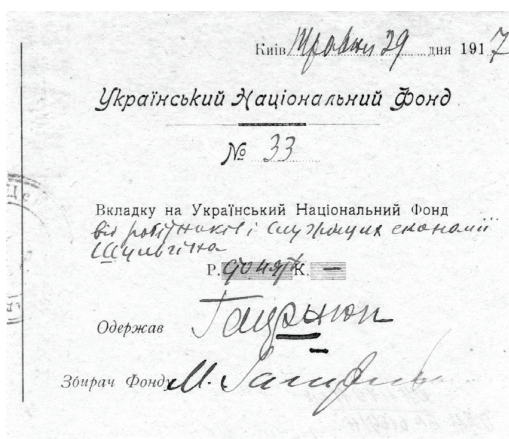 Київ Травня 29 дня 1917
Український Національний Фонд
№ 33
Вкладку на Український Національний Фонд
від робітників і служащих економії
Шульгіна
Р. К. —
Одержав
Збірач Фонду М.